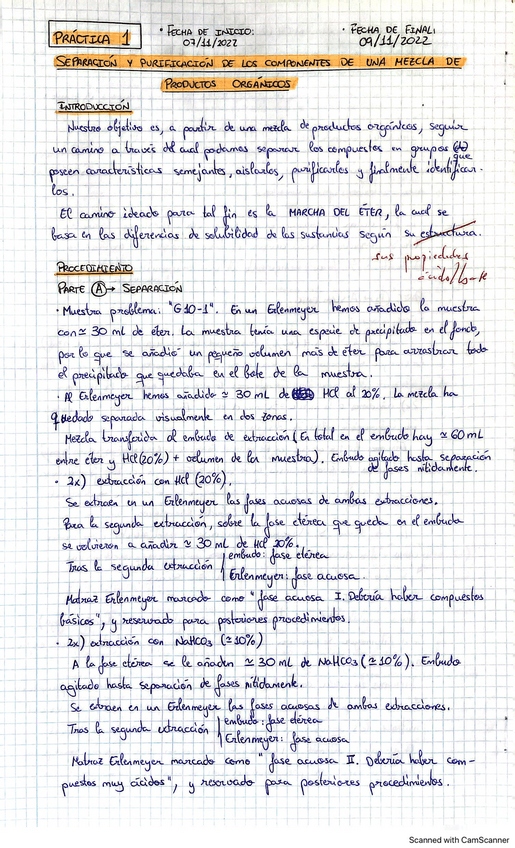 PRÁCTICA 1
• FECHA DE INICIO:
07/11/2022
• FECHA DE FINAL:
09/11/2022
SEPARACIÓN Y PURIFICACIÓN DE LOS COMPONENTES DE UNA MEZCLA DE
PRODUCTOS ORGÁNICOS
INTRODUCCIÓN
Nuestro objetivo es, a partir de una mezcla de productos orgánicos, seguir
un camino a través del cual podamos separar los compuestos en grupos que
poseen características semejantes, aislarlos, purificarlos y finalmente identificar-
los.
El camino ideado para tal fin es la MARCHA DEL ÉTER, la cual se
basa en las diferencias de solubilidad de las sustancias según su estructura.
sus propiedades
ácido/base
PROCEDIMIENTO
PARTE A → SEPARACIÓN
• Muestra problema: "G10-1". En un Erlenmeyer hemos añadido la muestra
con ≃ 30 mL de éter. La muestra tenía una especie de precipitado en el fondo,
por lo que se añadió un pequeño volumen más de éter para arrastrar todo
el precipitado que quedaba en el bote de la muestra.
• Al Erlenmeyer hemos añadido ≃ 30 mL de HCl al 20%. La mezcla ha
quedado separada visualmente en dos zonas.
Mezcla transferida al embudo de extracción (En total en el embudo hay ≃ 60 mL
entre éter y HCl (20%) + volumen de la muestra). Embudo agitado hasta separación
de fases nítidamente.
• 2x) extracción con HCl (20%).
Se extraen en un Erlenmeyer las fases acuosas de ambas extracciones.
Para la segunda extracción, sobre la fase etérea que queda en el embudo
se volvieron a añadir ≃ 30 mL de HCl 20%.
Tras la segunda extracción
embudo: fase etérea
Erlenmeyer: fase acuosa.
Matraz Erlenmeyer marcado como "fase acuosa I. Debería haber compuestos
básicos", y reservado para posteriores procedimientos.
• 2x) extracción con NaHCO3 (≃10%)
A la fase etérea se le añaden ≃ 30 mL de NaHCO3 (≃ 10%). Embudo
agitado hasta separación de fases nítidamente.
Se extraen en un Erlenmeyer las fases acuosas de ambas extracciones.
Tras la segunda extracción
embudo: fase etérea
Erlenmeyer: fase acuosa
Matraz Erlenmeyer marcado como "fase acuosa II. Debería haber com-
puestos muy ácidos", y reservado para posteriores procedimientos.
Scanned with CamScanner